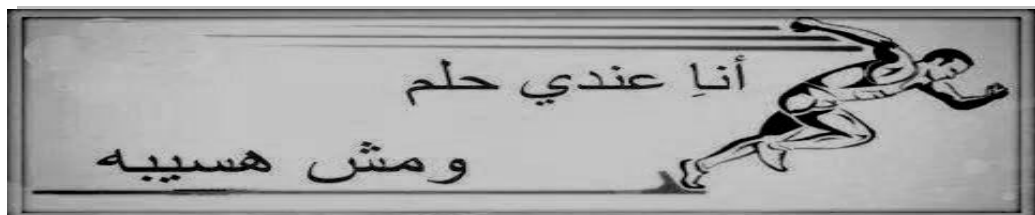 أناِ عندي حلم
ومش هسيبه